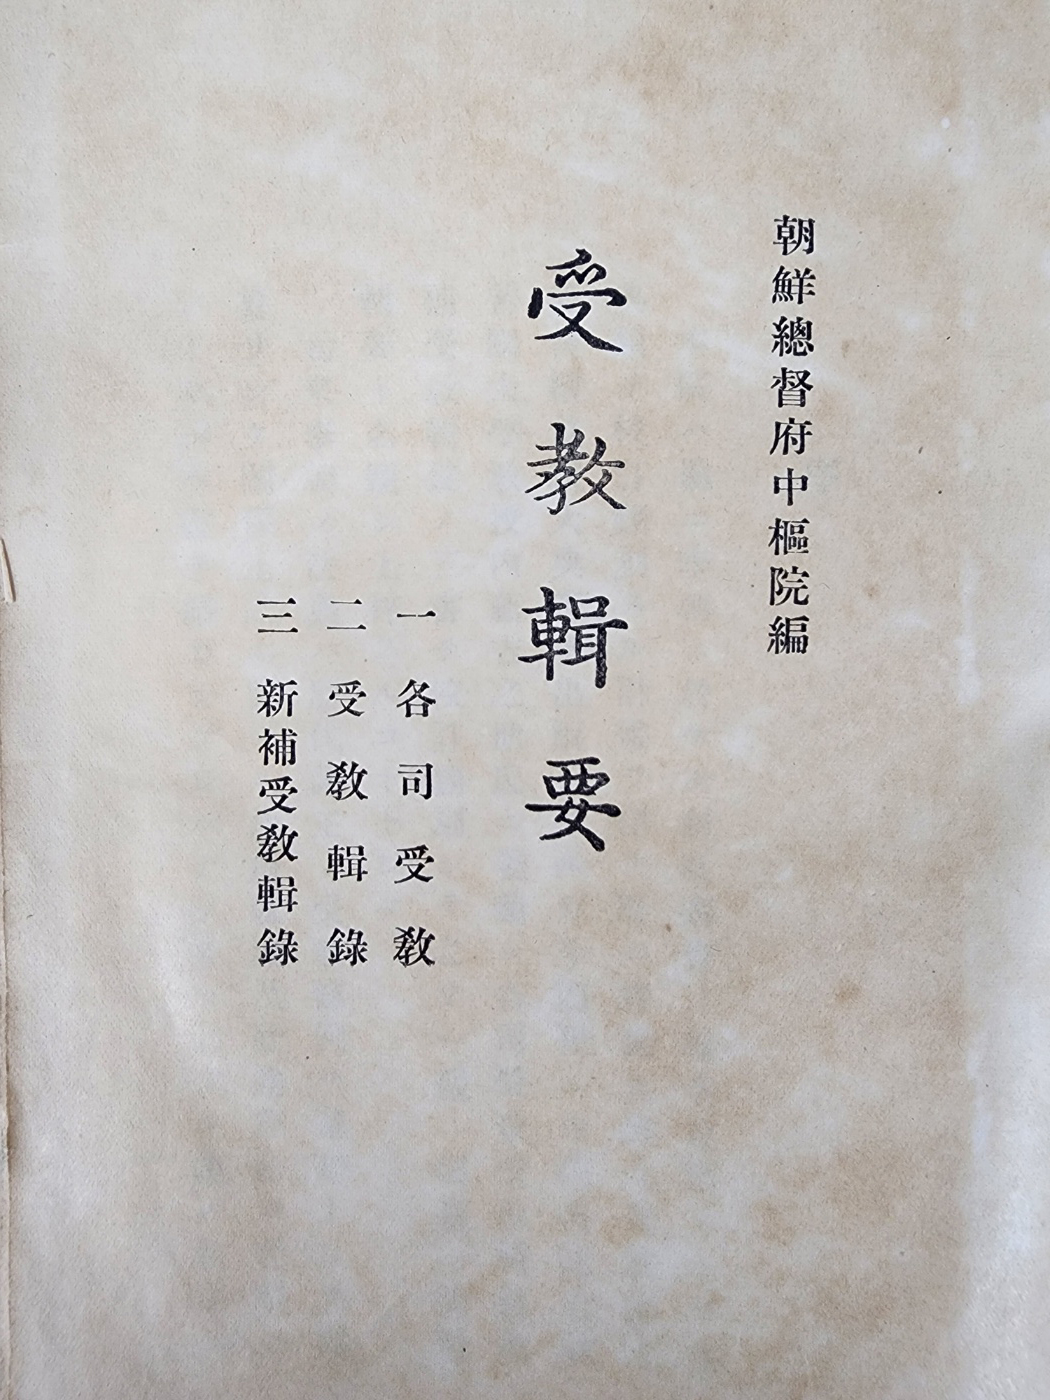 朝鮮總督府中樞院編
受敎輯要
一 各司受敎
二 受敎輯錄
三 新補受敎輯錄